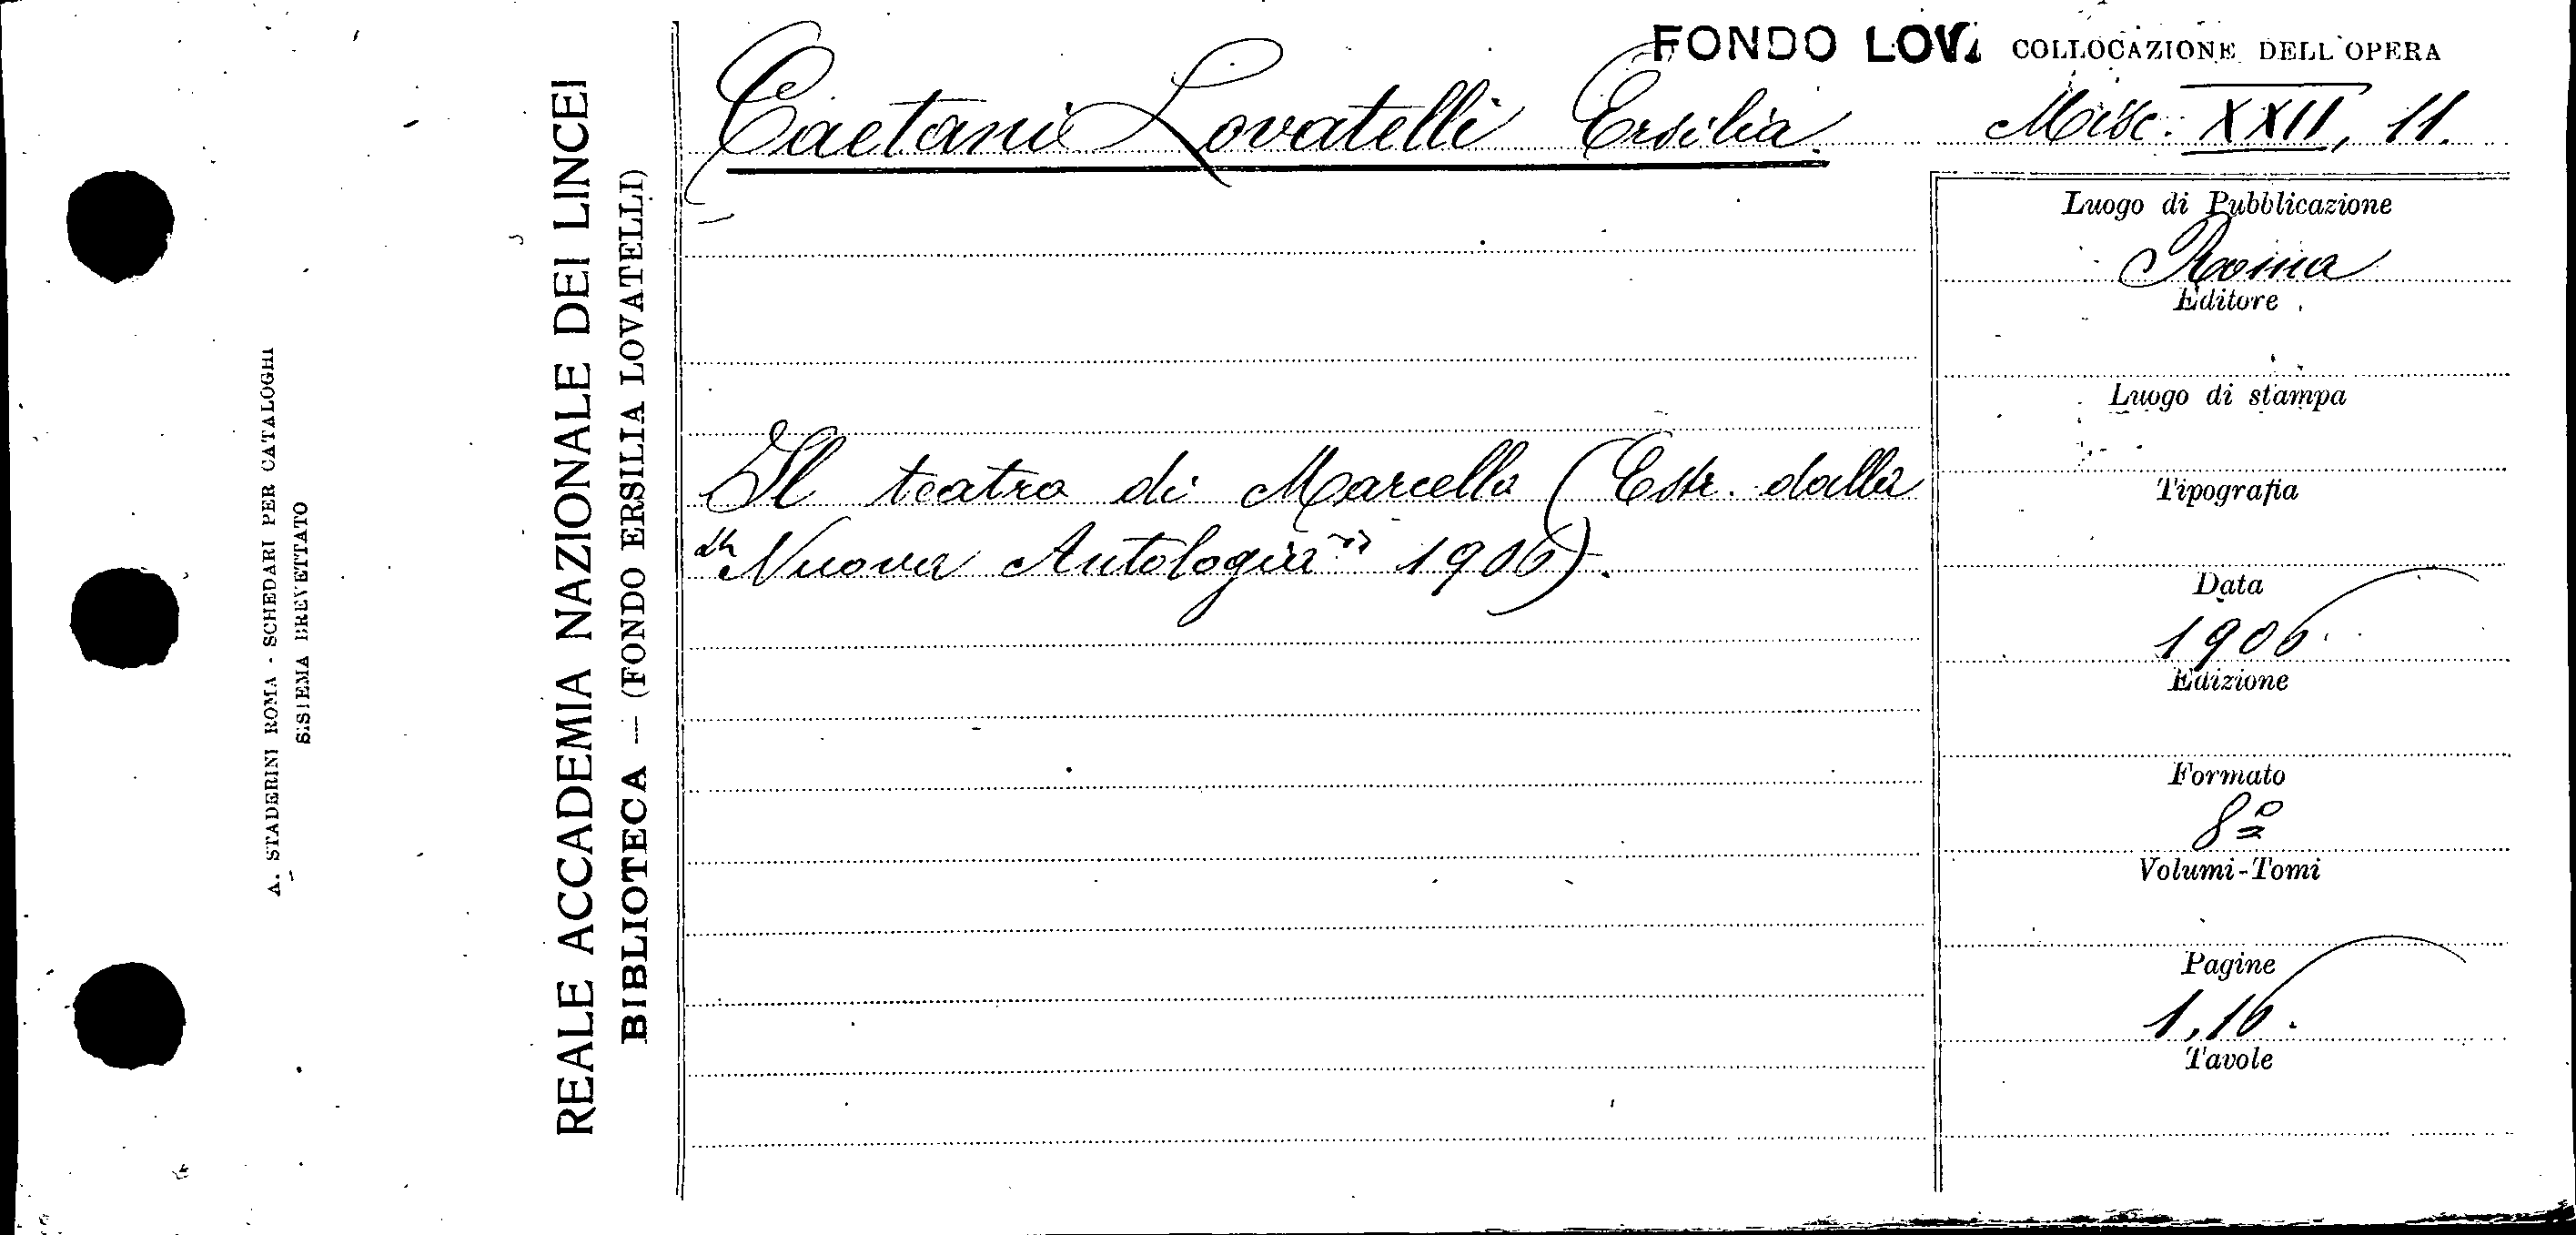 A. STADERINI ROMA - SCHEDARI PER CATALOGHI
SISTEMA BREVETTATO
REALE ACCADEMIA NAZIONALE DEI LINCEI
BIBLIOTECA — (FONDO ERSILIA LOVATELLI)
FONDO LOV.
COLLOCAZIONE DELL'OPERA
Caetani Lovatelli Ersilia.
Misc. XXII, 11.
Il teatro di Marcello (Estr. dalla
"Nuova Antologia" 1906).
Luogo di Pubblicazione
Roma
Editore
Luogo di stampa
Tipografia
Data
1906.
Edizione
Formato
8º
Volumi-Tomi
Pagine
1,16.
Tavole